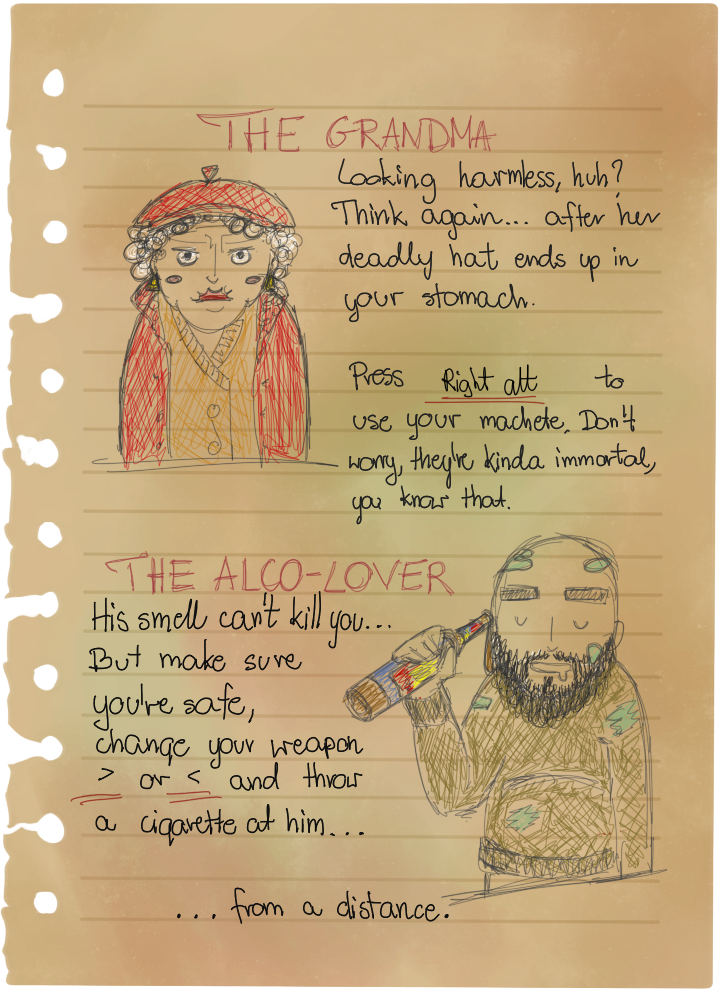 THE GRANDMA
Looking harmless, huh?
Think again... after her
deadly hat ends up in
your stomach.
Press Right alt to
use your machete. Don't
worry, they're kinda immortal,
you know that.
THE ALCO-LOVER
His smell can't kill you...
But make sure
you're safe,
change your weapon
> or < and throw
a cigarette at him...
... from a distance.